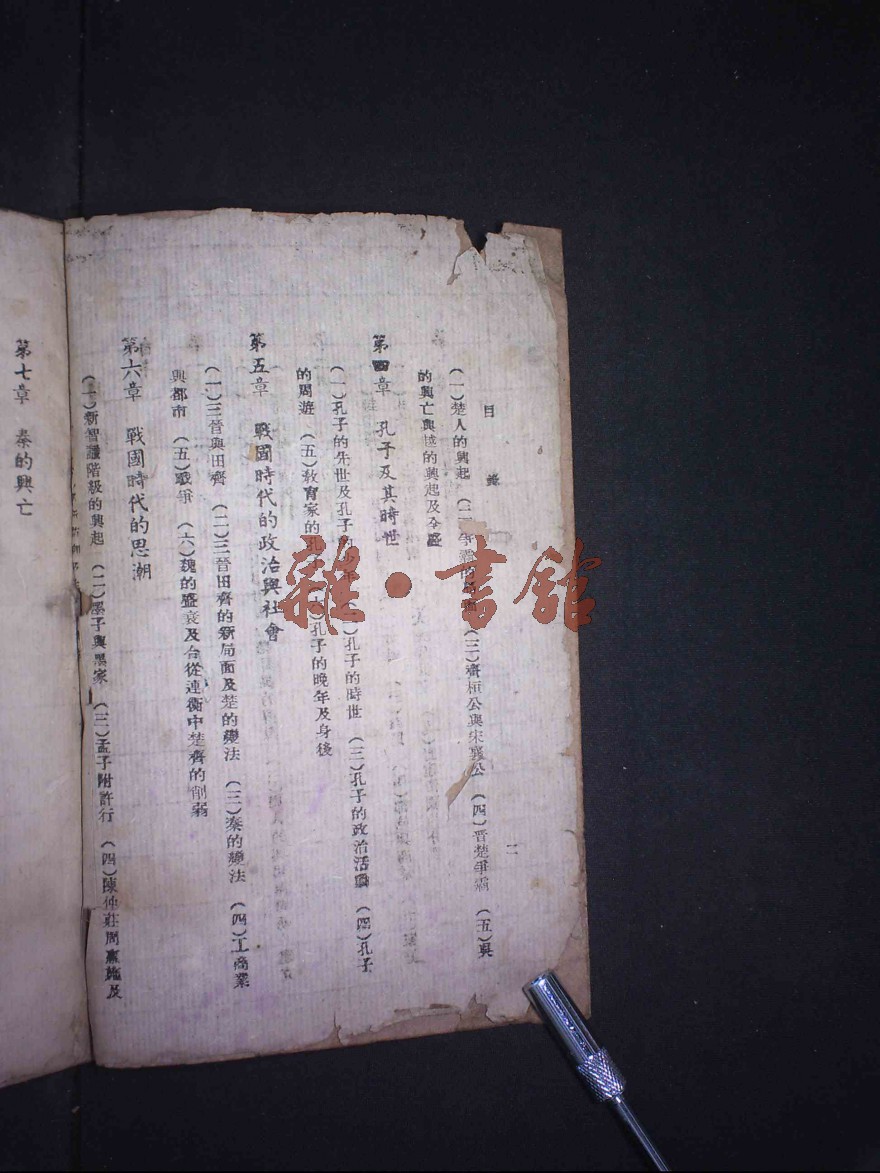 目錄
二
(一)楚人的興起 (二)爭霸的 (三)齊桓公與宋襄公 (四)晉楚爭霸 (五)吳
的興亡與越的興起及全盛
第四章 孔子及其時世
(一)孔子的先世及孔子的少年 (二)孔子的時世 (三)孔子的政治活動 (四)孔子
的周遊 (五)教育家的孔子 (六)孔子的晚年及身後
第五章 戰國時代的政治與社會
(一)三晉與田齊 (二)三晉田齊的新局面及楚的變法 (三)秦的變法 (四)工商業
與都市 (五)戰爭 (六)魏的盛衰及合從連衡中楚齊的削弱
第六章 戰國時代的思潮
(一)新智識階級的興起 (二)墨子與墨家 (三)孟子附許行 (四)陳仲莊周惠施及
第七章 秦的興亡
雜·書館